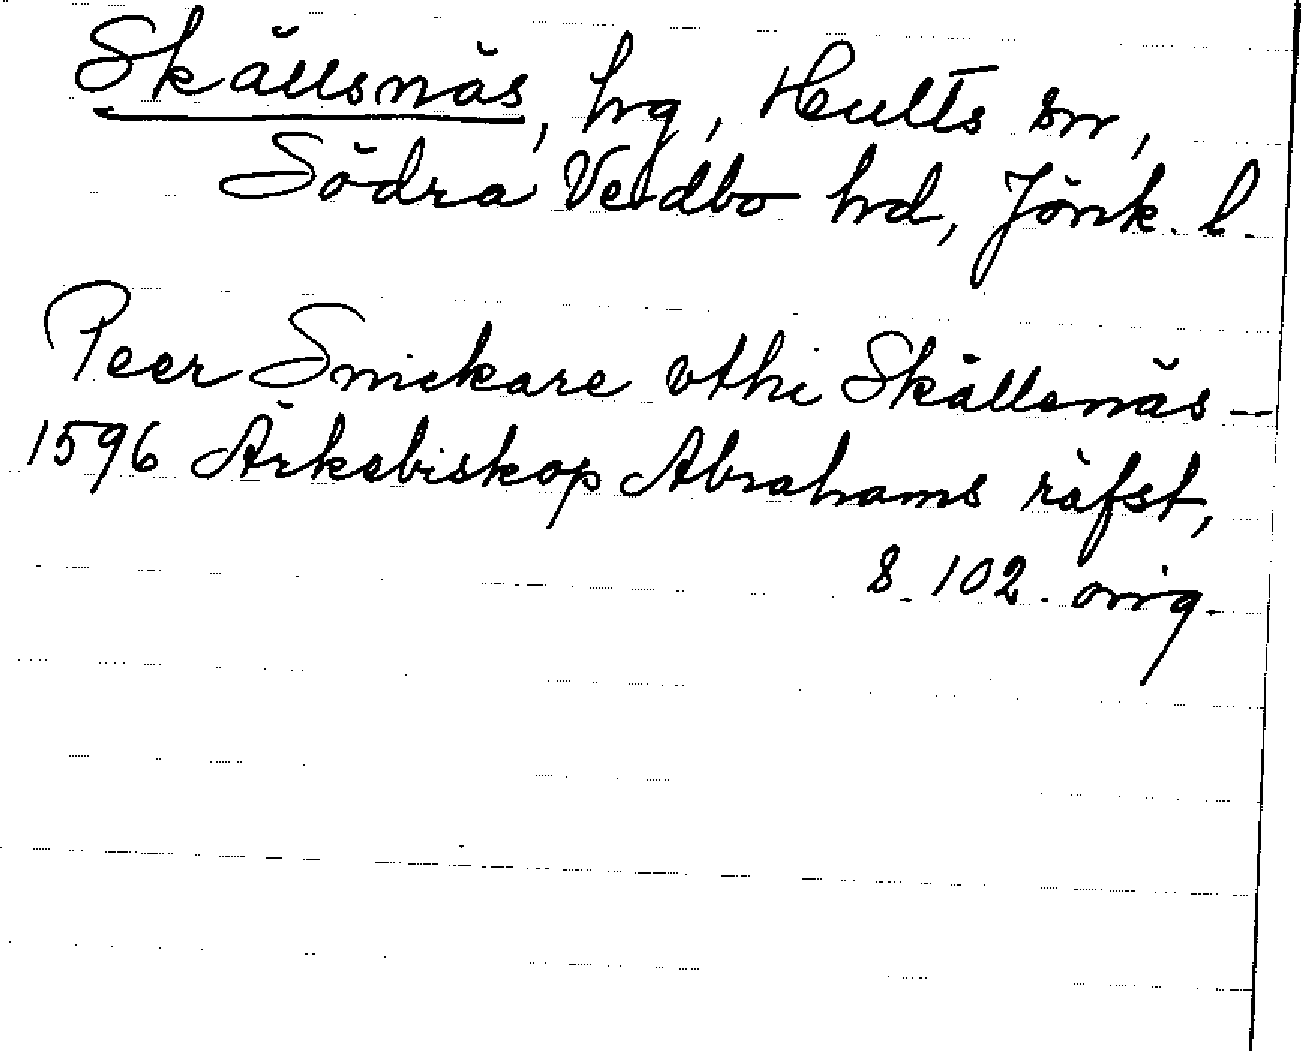 Skällsnäs, hrg, Hults sn,
Södra Vedbo hrd, Jönk. l.
Peer Snickare vthi Skällsnäs --
1596 Ärkebiskop Abrahams räfst,
s. 102. orig.